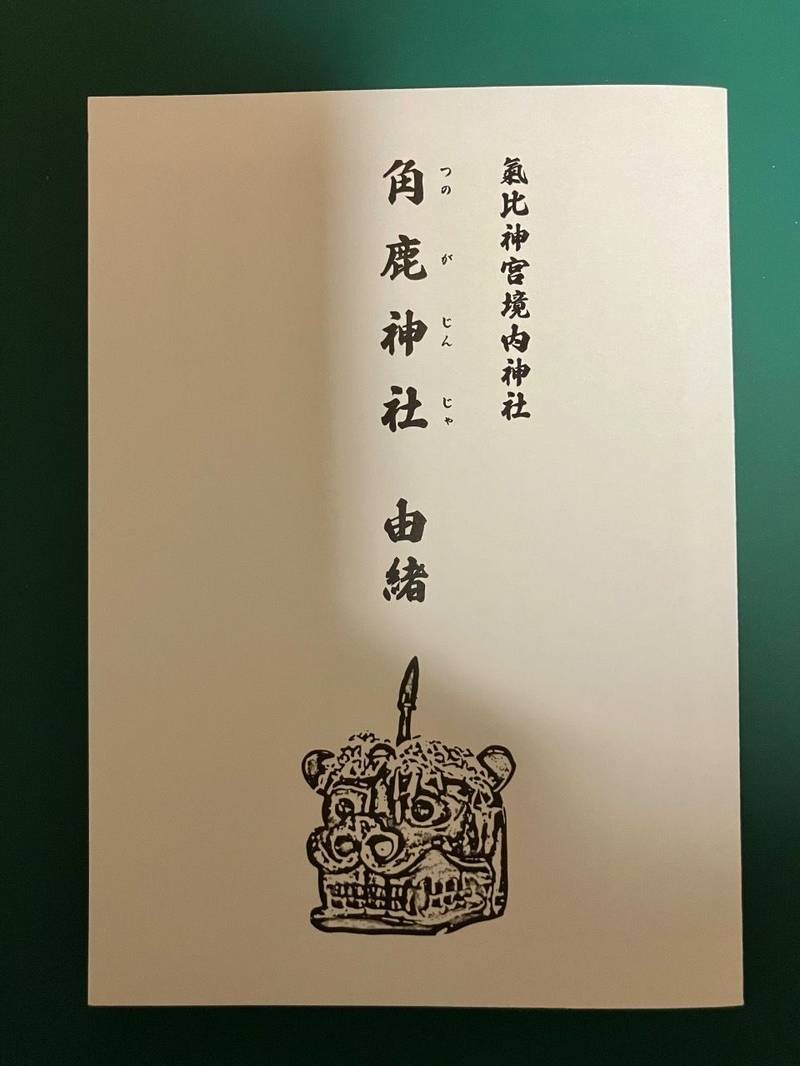 氣比神宮境内神社
つの が じん じゃ
角鹿神社 由緒